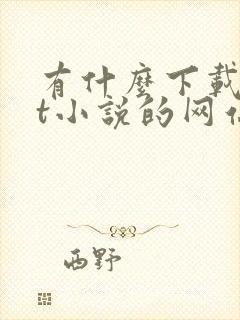 有什麼下載
t小說的网
西野